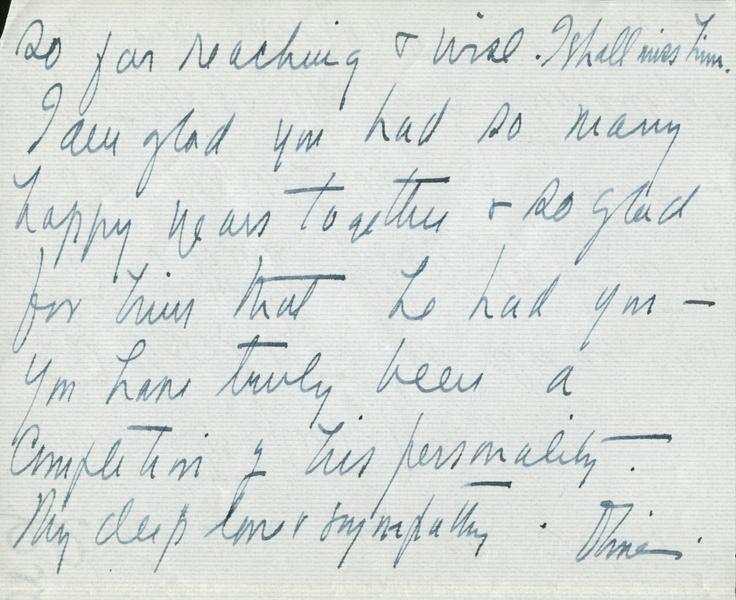 so far reaching & wise. I shall miss him.
I am glad you had so many
happy years together & so glad
for him that he had you —
You have truly been a
Completion of his personality.
My deep love & sympathy.